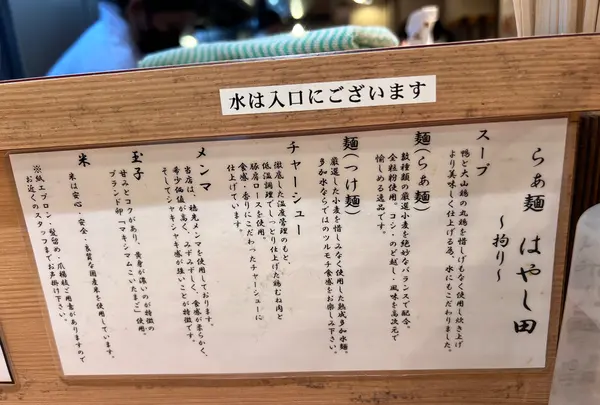 水は入口にございます
らぁ麺 はやし田
～拘り～
スープ
鴨と大山鶏の丸鶏を惜しげもなく使用し炊き上げ
より美味しく仕上げる為、水にもこだわりました。
麺(らぁ麺)
数種類の厳選小麦を絶妙なバランスで配合。
全粒粉使用。コシ・のど越し・風味を高次元で
愉しめる逸品です。
麺(つけ麺)
厳選した小麦を惜しみなく使用した熟成多加水麺。
多加水ならではのツルモチ食感をお楽しみ下さい。
チャーシュー
徹底した温度管理のもと、
低温調理でしっとり仕上げた鶏むね肉と
豚肩ロースを使用。
食感・香りにこだわったチャーシューに
仕上げています。
メンマ
当店は、穂先メンマを使用しております。
希少価値が高く、みずみずしく、食感が柔らかく、
そしてシャキシャキ感が強いことが特徴です。
玉子
甘みとコクがあり、黄身が濃いのが特徴の
ブランド卵「マキシマムこいたまご」使用。
米
米は安心・安全・良質な国産米を使用しています。
※紙エプロン・髪留め・爪楊枝ご用意がありますので
お近くのスタッフまでお声掛け下さい。